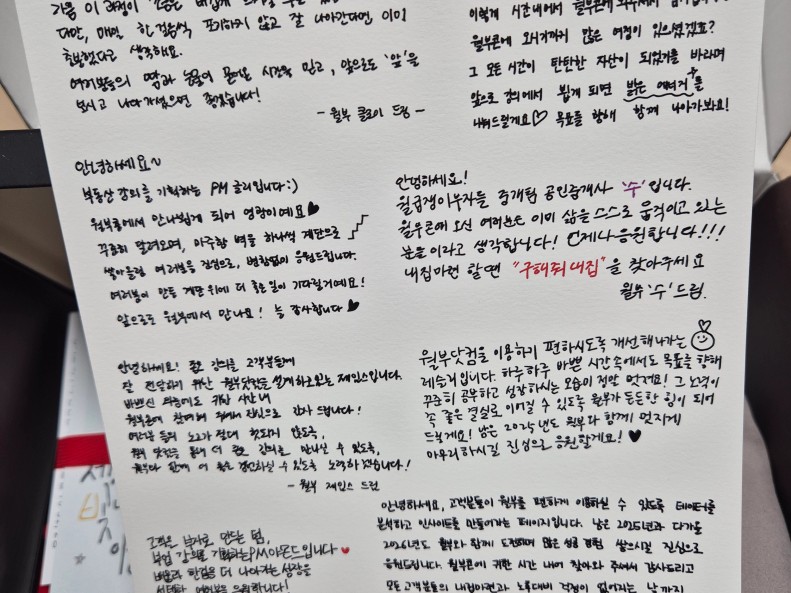 가끔 이 과정이
다만, 매번, 한 걸음씩 포기하지 않고 잘 나아간다면, 이미
출발했다고 생각해요.
여러분들의 땀과 눈물이 묻어온 시간을 믿고, 앞으로도 '앞'을
보시고 나아가셨으면 좋겠습니다!
- 월부 클로이 드림 -
이렇게 시간 내에서 월부콘에
월부콘에 오시기까지 많은 여정이 있으셨겠죠?
그 모든 시간이 탄탄한 자산이 되었기를 바라며
앞으로 강의에서 뵙게 되면 밝은 에너지를
나눠드릴게요♡ 목표를 향해 함께 나아가봐요!
안녕하세요~
부동산 강의를 기획하는 PM 글리입니다:)
월부콘에서 만나뵙게 되어 영광이에요♥
꾸준히 달려오며, 아득한 벽을 하나씩 계단으로
쌓아올린 여러분을 진심으로, 변함없이 응원드립니다.
여러분이 만든 계단 위에 더 좋은 일이 기다릴거예요!
앞으로도 월부에서 만나요! 늘 감사합니다♥
안녕하세요!
월급쟁이부자들 중개팀 공인중개사 '수'입니다.
월부콘에 오신 여러분은 이미 삶을 스스로 움직이고 있는
분들이라고 생각합니다! 언제나응원합니다!!!
내집마련 할땐 "구해줘내집"을 찾아주세요
월부 '수' 드림.
안녕하세요! 좋은 강의를 고객분들께
잘 전달하기 위한 월부닷컴을 설계하고있는 제임스입니다.
바쁘신 와중에도 귀한 시간 내
월부콘에 참여해 주셔서 진심으로 감사 드립니다!
여러분 들의 노고가 절대 헛되지 않도록,
월부 닷컴을 통해 더 좋은 강의를 만나실 수 있도록,
월부와 함께 더 좋은 경험하실 수 있도록 노력하겠습니다!
- 월부 제임스 드림
월부닷컴을 이용하기 편하시도록 개선해나가는
레슬리입니다. 하루하루 바쁜 시간속에서도 목표를 향해
꾸준히 공부하고 성장하시는 모습이 정말 멋져요! 그 노력이
꼭 좋은 결실로 이어질 수 있도록 월부가 든든한 힘이 되어
드릴게요! 남은 2025년도 월부와 함께 멋지게
마무리하시길 진심으로 응원할게요! ♥
고객을 부자로 만드는 팀,
부업 강의를 기획하는PM아몬드입니다♥
한걸음 더 나아가는 성장을
선택한 여러분을 응원합니다!
안녕하세요, 고객분들이 월부를 편하게 이용하실 수 있도록 데이터를
분석하고 인사이트를 만들어가는 페이지입니다. 남은 2025년과 다가올
2026년도 월부와 함께 도전하며 많은 성공 경험 쌓으시길 진심으로
응원드립니다. 월부콘에 귀한 시간 내어 찾아와 주셔서 감사드리고
모든 고객분들의 내집마련과 노후대비 걱정이 없어지는 날까지